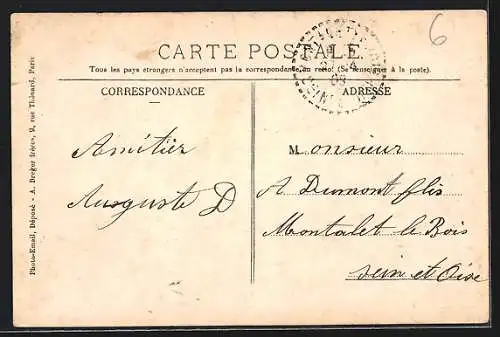 6
CARTE POSTALE
Tous les pays étrangers n'acceptent pas la correspondance au recto. (Se renseigner à la poste).
CORRESPONDANCE
ADRESSE
Amitier
Auguste D
Monsieur
A Dumont fils
Montalet le Bois
sein et Oise
Photo-Email, Déposé - A. Breger frères, 9, rue Thénard, Paris